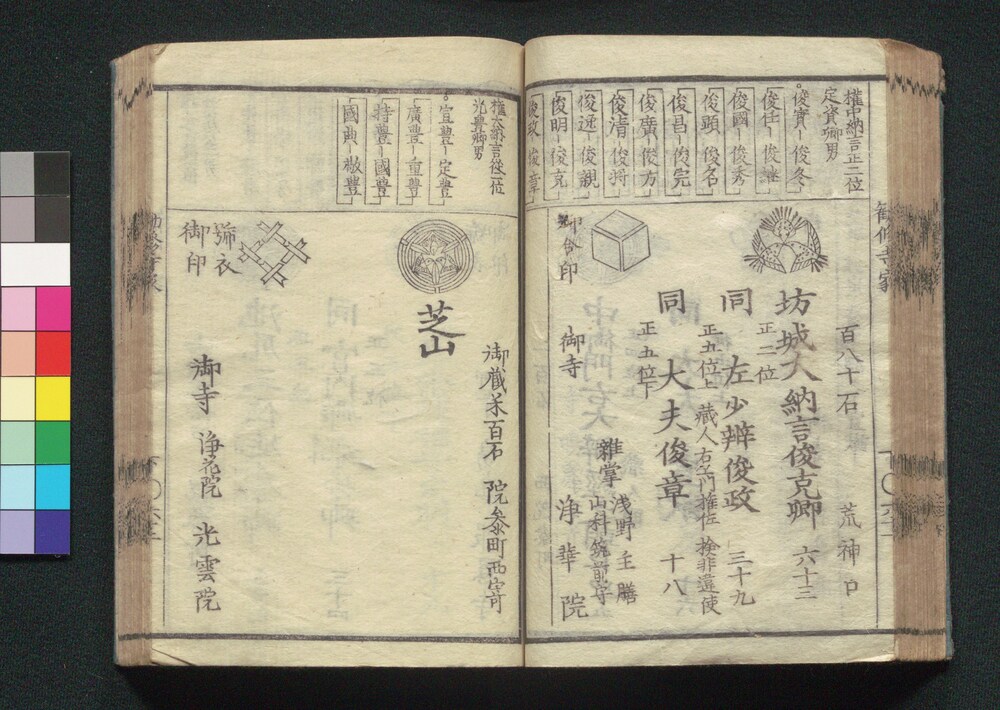 勧修寺家
權中納言正二位
定資卿男
俊實 俊冬
俊任 俊継
俊國 俊秀
俊顕 俊名
俊昌 俊完
俊廣 俊方
俊清 俊将
俊逸 俊親
俊明 俊克
俊政 俊章
百八十石 荒神口
坊城大納言俊克卿 六十三
正二位
同 左少辨俊政 三十九
正五位上 藏人右衛門権佐 検非違使
同 大夫俊章 十八
正五位下
雜掌 浅野主膳
山科筑前守
御合印
御寺 浄華院
權大納言従一位
光豊卿男
宣豊 定豊
廣豊 重豊
持豊 國豊
國典 敬豊
御蔵米百石 院参町西穴町
芝山
號衣
御印
御寺 浄花院 光雲院